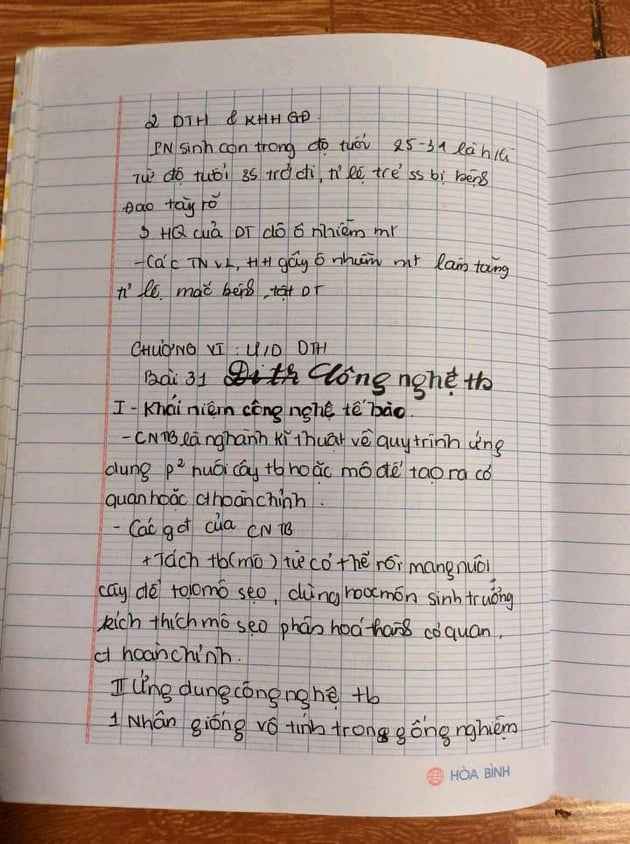 2 DTH & KHHGĐ
PN sinh con trong độ tuổi 25-31 là hlí
Từ độ tuổi 35 trở đi, tỉ lệ trẻ ss bị bệng
Đao tăng rõ
3 HQ của DT dô ô nhiễm mt
-Các TN VL, HH gây ô nhiễm mt làm tăng
tỉ lệ mắc bệng, tật DT
CHƯƠNG VI: Ư/D DTH
Bài 31 Công nghệ tb
I - Khái niệm công nghệ tế bào.
- CNTB là nghành kĩ thuật về quy trình ứng
dụng p² nuôi cấy tb hoặc mô để tạo ra cơ
quan hoặc ct hoàn chỉnh.
- Các gđ của CNTB
+ Tách tb (mô) từ cơ thể rồi mang nuôi
cấy để tạo mô sẹo, dùng hoocmôn sinh trưởng
kích thích mô sẹo phân hoá thàng cơ quan,
ct hoàn chỉnh.
II Ứng dụng công nghệ tb
1 Nhân giống vô tính trong gống nghiệm
HÒA BÌNH